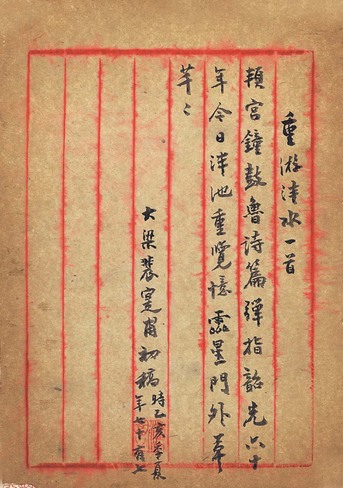 重游泮水一首
頖宮鐘鼓魯詩篇彈指韶光六十
年今日泮池重覽憶靈星門外草
芊〻
大梁裴寔甫初稿
時乙亥季夏
年七十有七